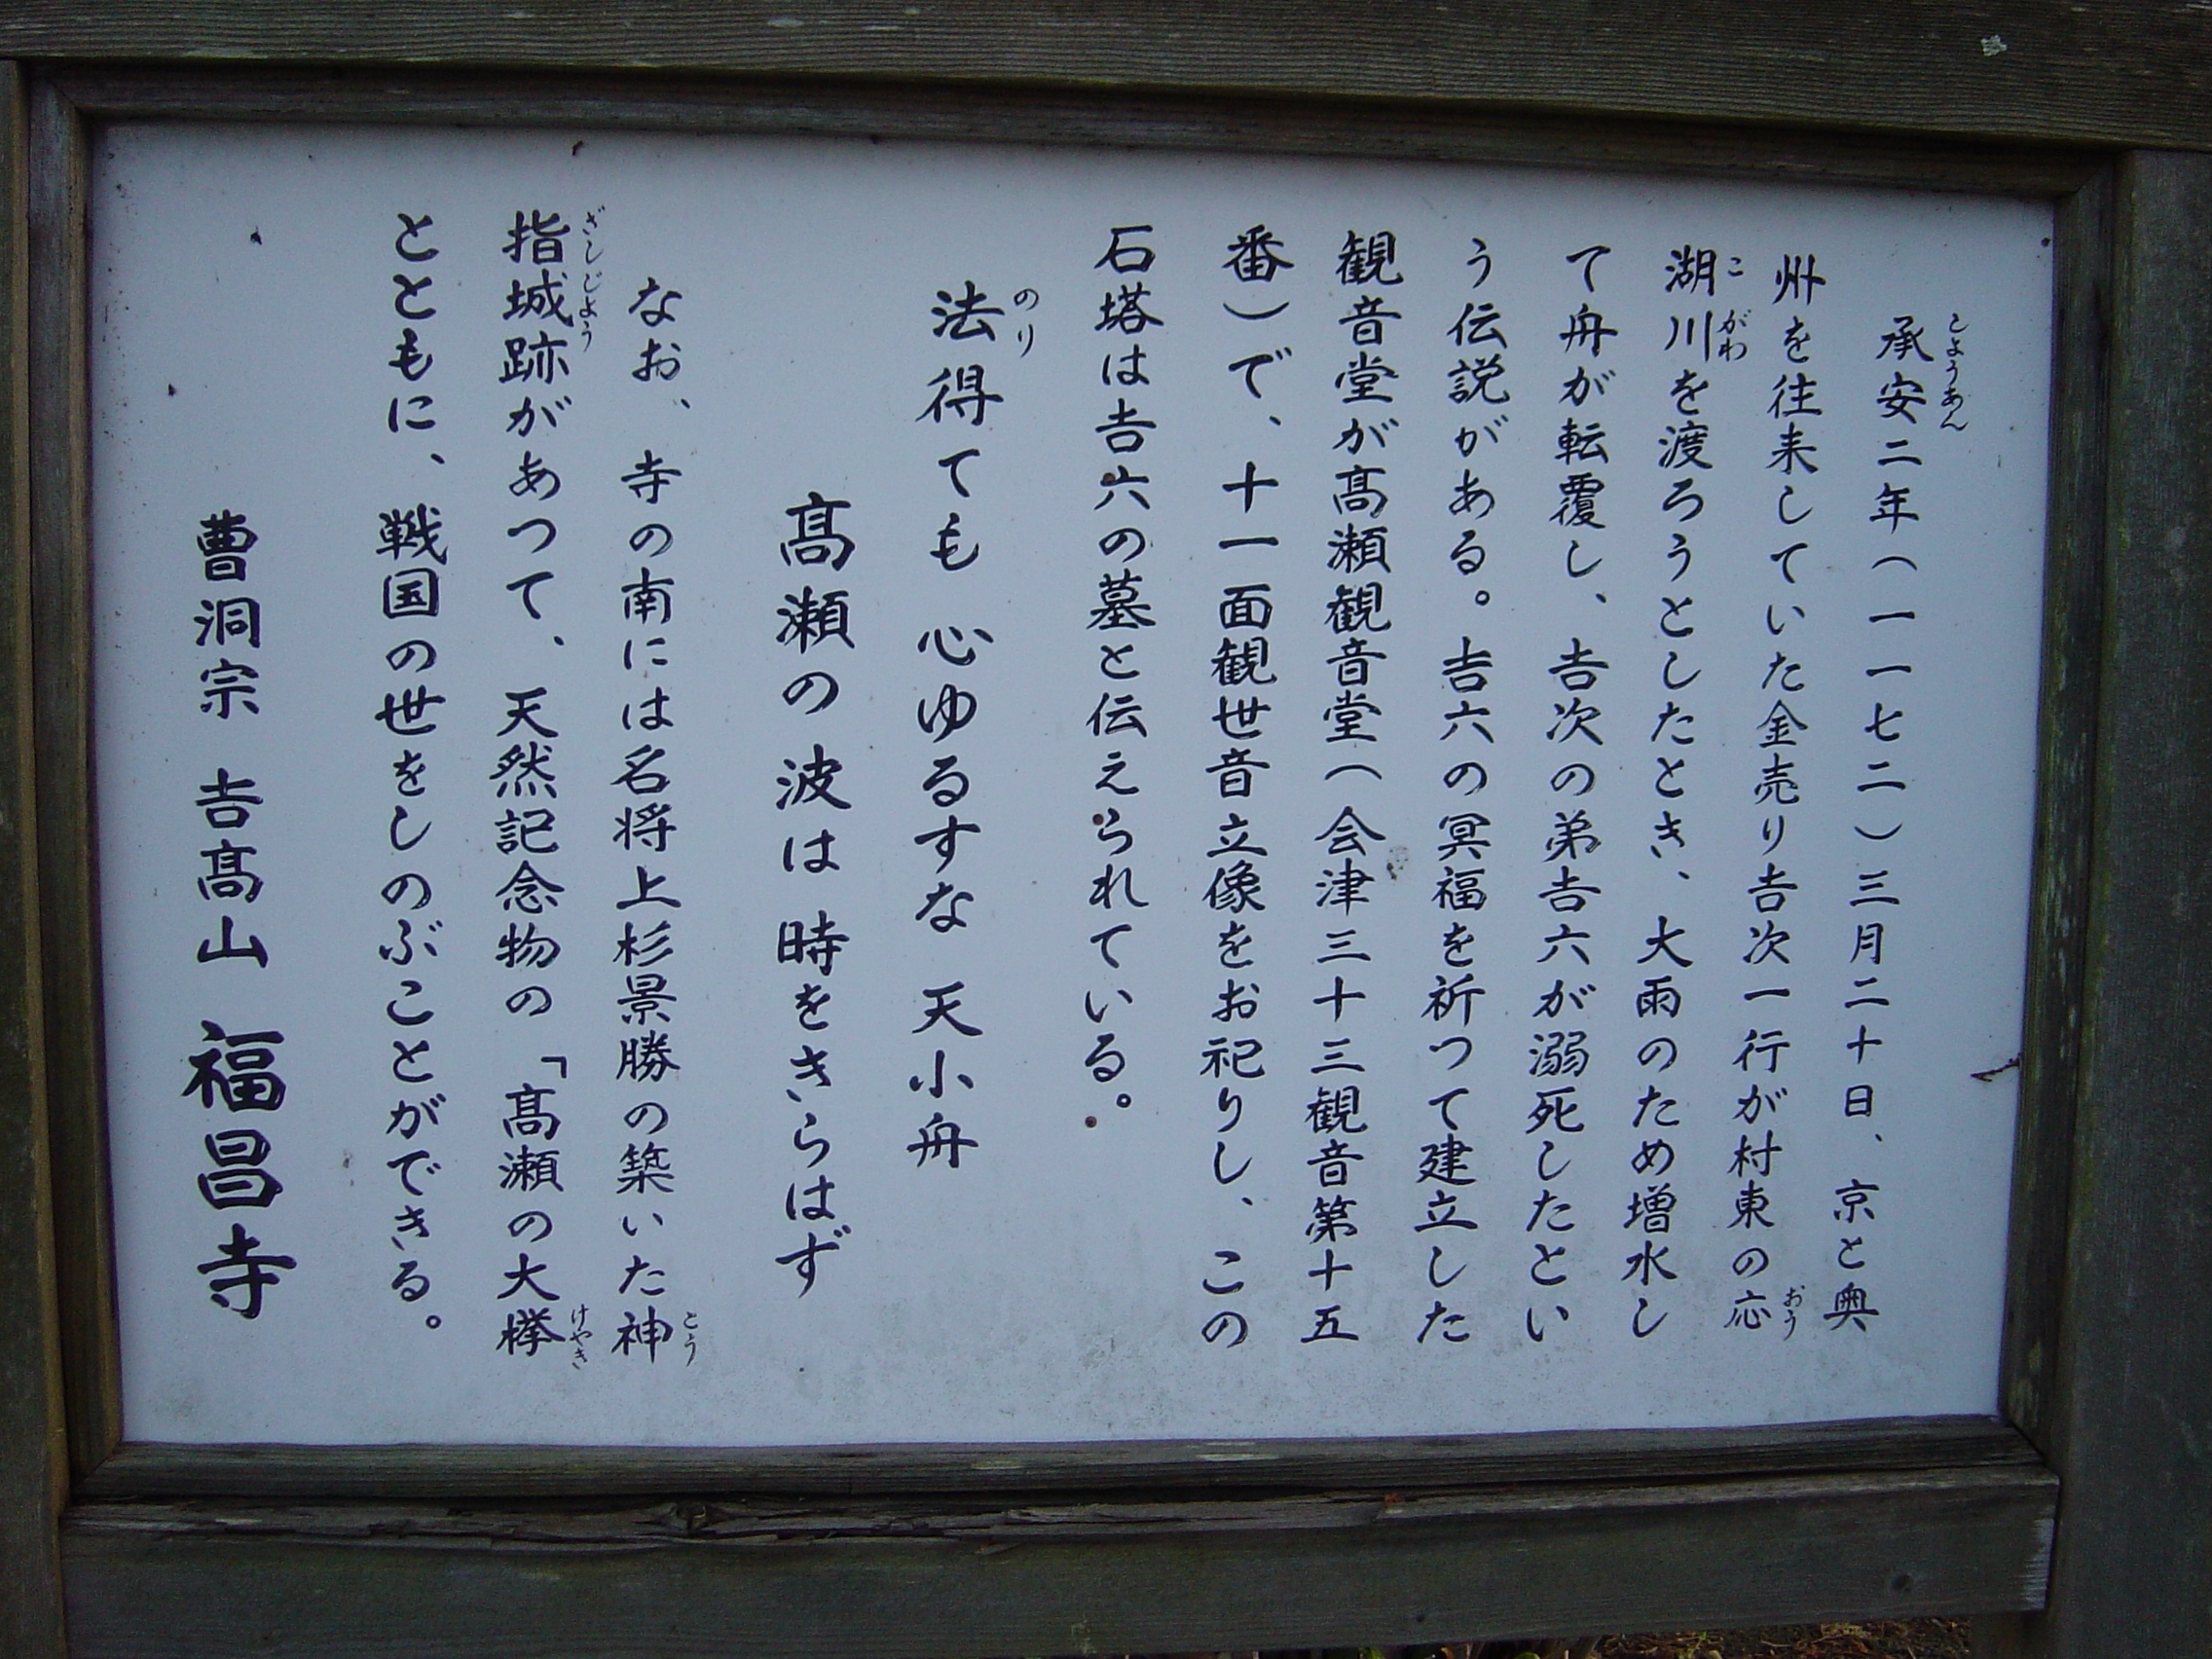 承安二年(一一七二)三月二十日、京と奥
州を往来していた金売り吉次一行が村東の応
湖川を渡ろうとしたとき、大雨のため増水し
て舟が転覆し、吉次の弟吉六が溺死したとい
う伝説がある。吉六の冥福を祈つて建立した
観音堂が髙瀬観音堂(会津三十三観音第十五
番)で、十一面観世音立像をお祀りし、この
石塔は吉六の墓と伝えられている。
法得ても 心ゆるすな 天小舟
髙瀬の波は 時をきらはず
なお、寺の南には名将上杉景勝の築いた神
指城跡があつて、天然記念物の「髙瀬の大欅
とともに、戦国の世をしのぶことができる。
曹洞宗 吉髙山 福昌寺